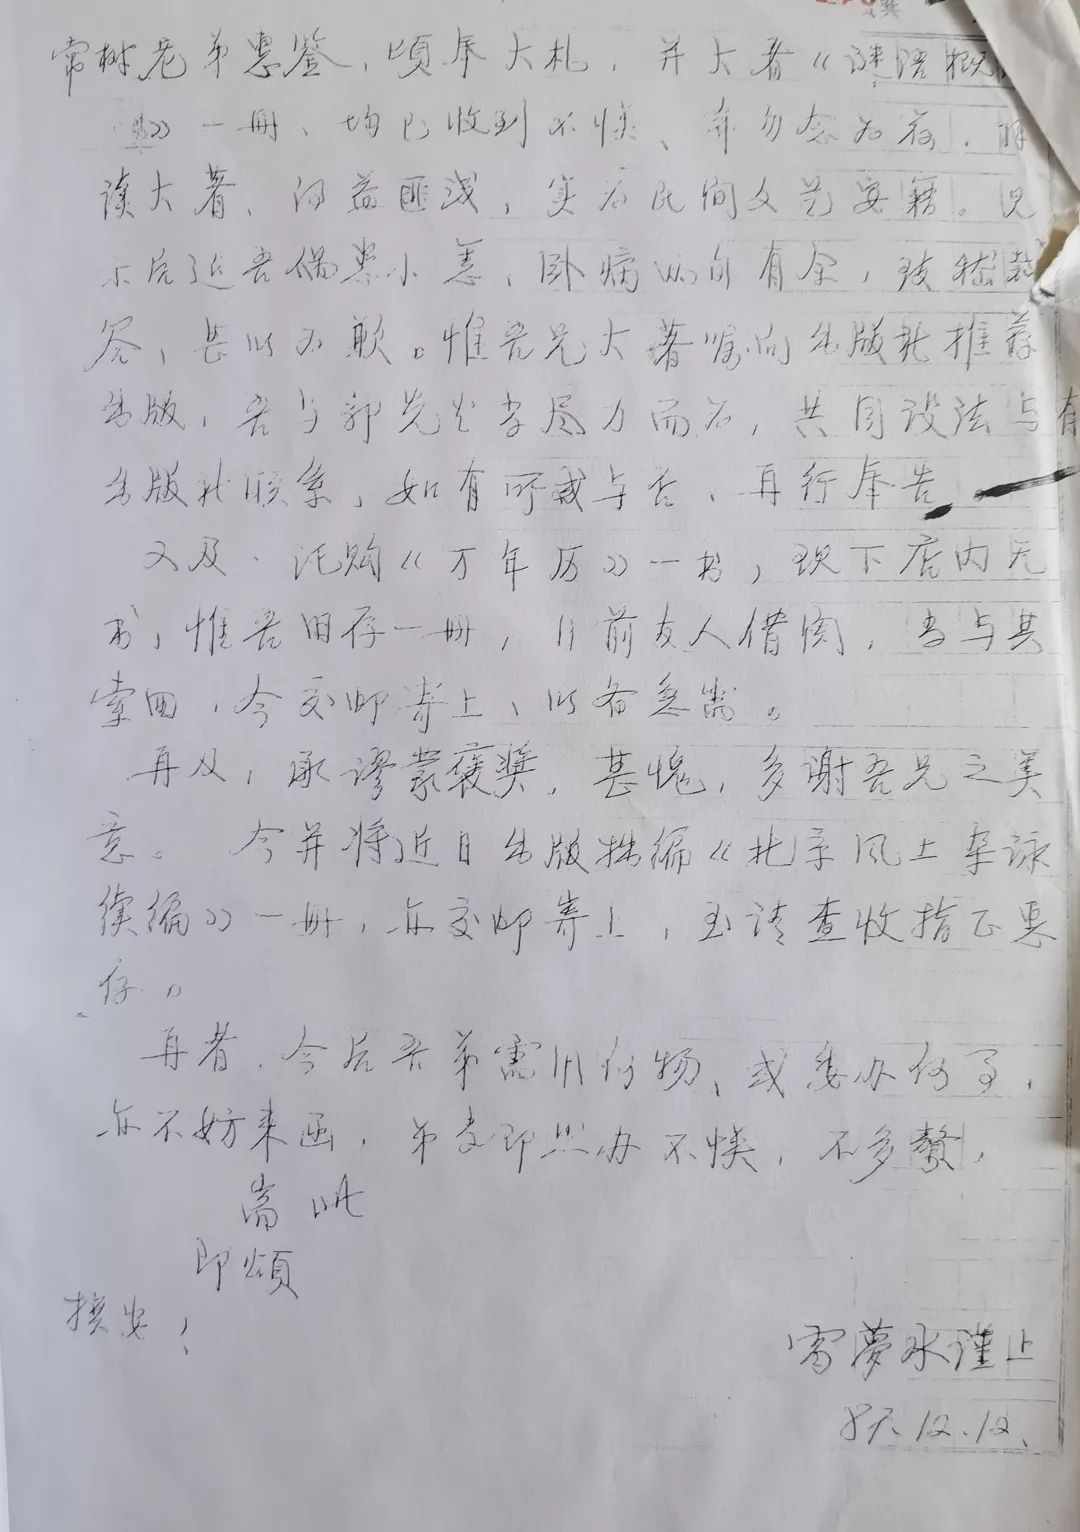 常树芑弟惠鉴,顷奉大札,并大著《谜语概
》一册、均已收到不悮、希勿念为荷,
读大著、得益匪浅,实为民间文艺要籍。
示后近吾偶患小恙、卧病两旬有余,致稽
答,甚以为歉。惟吾兄大著嘱向出版社推荐
出版,吾与郭兄必当尽力而为,共同设法与有
出版社联系,如有所成与否、再行奉告
又及·托购《万年历》一书,现下店内无
书,惟吾旧存一册,日前友人借阅,当与其
索回,今交邮寄上、以备急需。
再及,承谬蒙褒奖,甚愧,多谢吾兄之美
意。 今并将近日出版拙编《北京风土杂咏
续编》一册,亦交邮寄上,至请查收指正惠
存。
再者,今后吾弟需用何物、或委办何事,
亦不妨来函,弟当即照办不悮,不多赘,
耑此
即颂
撰安!
雷夢水谨上
87.12.12.